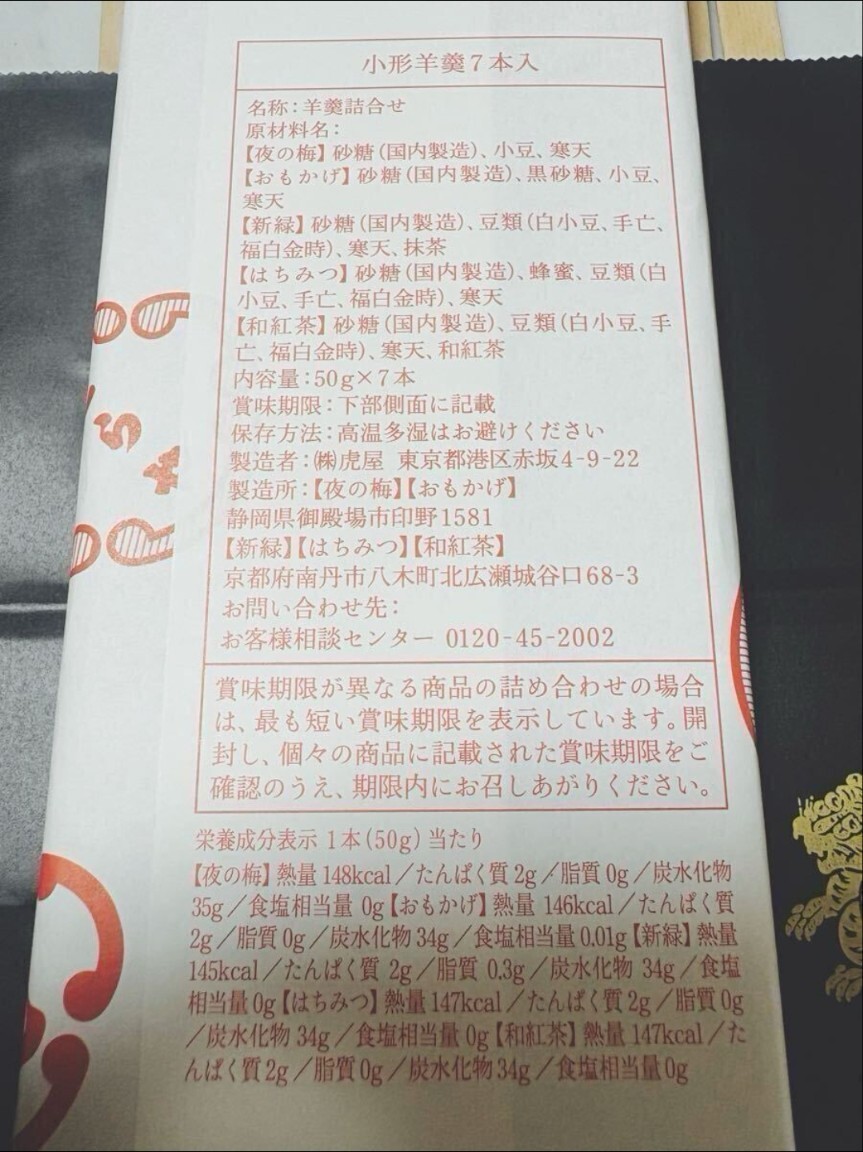 小形羊羹7本入
名称:羊羹詰合せ
原材料名:
【夜の梅】砂糖(国内製造)、小豆、寒天
【おもかげ】砂糖(国内製造)、黒砂糖、小豆、
寒天
【新緑】砂糖(国内製造)、豆類(白小豆、手亡、
福白金時)、寒天、抹茶
【はちみつ】砂糖(国内製造)、蜂蜜、豆類(白
小豆、手亡、福白金時)、寒天
【和紅茶】砂糖(国内製造)、豆類(白小豆、手
亡、福白金時)、寒天、和紅茶
内容量:50g×7本
賞味期限:下部側面に記載
保存方法:高温多湿はお避けください
製造者:㈱虎屋 東京都港区赤坂4-9-22
製造所:【夜の梅】【おもかげ】
静岡県御殿場市印野1581
【新緑】【はちみつ】【和紅茶】
京都府南丹市八木町北広瀬城谷口68-3
お問い合わせ先:
お客様相談センター 0120-45-2002
賞味期限が異なる商品の詰め合わせの場合
は、最も短い賞味期限を表示しています。開
封し、個々の商品に記載された賞味期限をご
確認のうえ、期限内にお召しあがりください。
栄養成分表示 1本(50g)当たり
【夜の梅】熱量148kcal/たんぱく質2g/脂質0g/炭水化物
35g/食塩相当量 0g【おもかげ】熱量146kcal/たんぱく質
2g/脂質0g/炭水化物34g/食塩相当量0.01g【新緑】熱量
145kcal/たんぱく質 2g/脂質 0.3g/炭水化物 34g/食塩
相当量0g【はちみつ】熱量147kcal/たんぱく質2g/脂質0g
/炭水化物34g/食塩相当量0g【和紅茶】熱量147kcal/た
んぱく質2g/脂質0g/炭水化物34g/食塩相当量0g